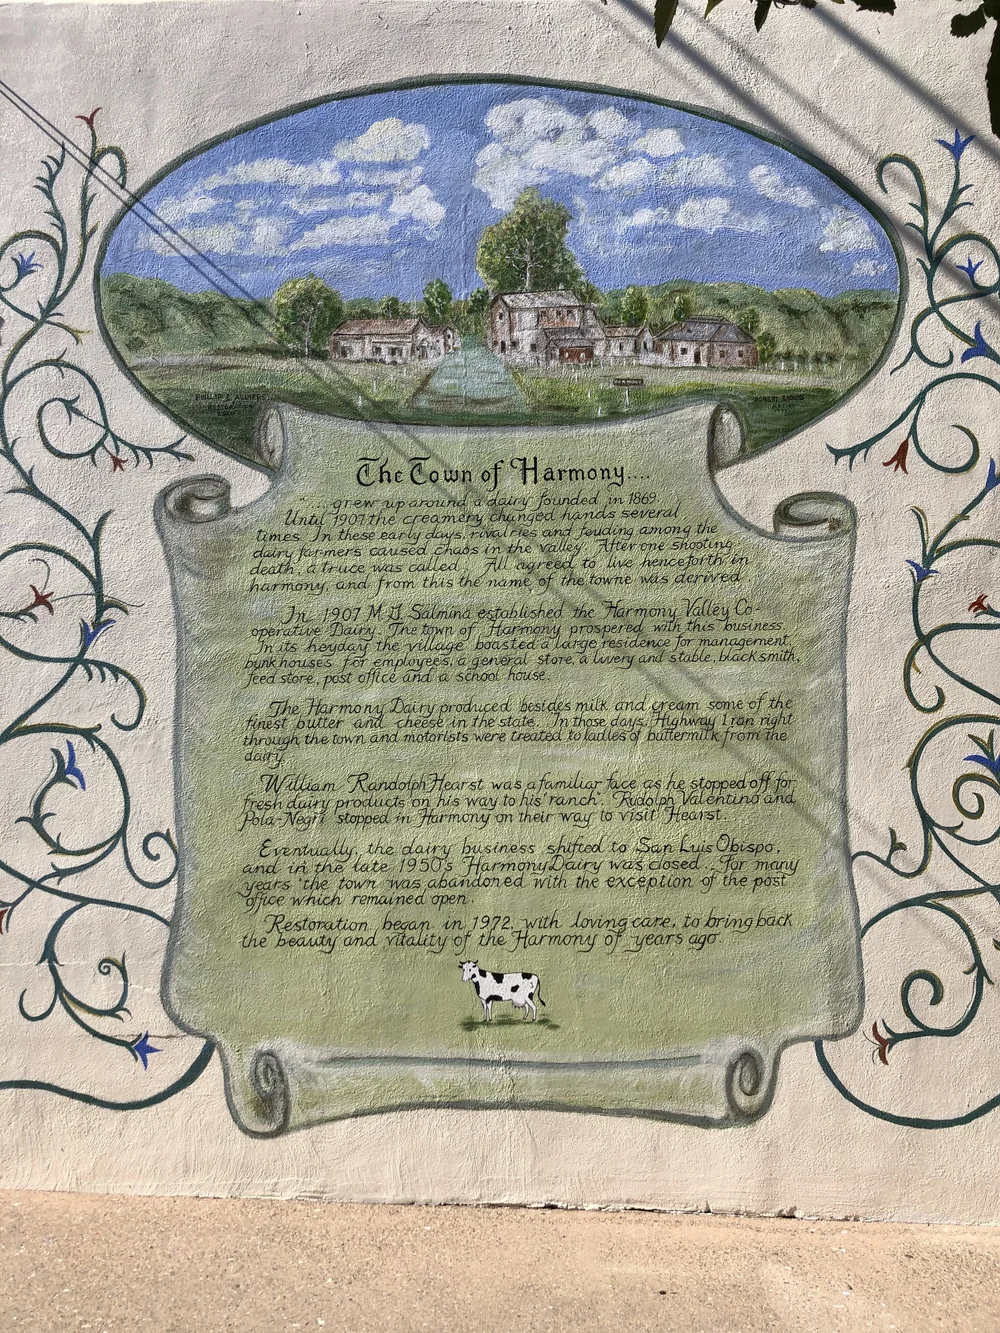 PHILLIP E. AGUIRRE
RESTORATION
HARMONY
ROBERT
The Town of Harmony....
"....grew up around a dairy founded in 1869.
Until 1907 the creamery changed hands several
times. In these early days, rivalries and feuding among the
dairy farmers caused chaos in the valley. After one shooting
death, a truce was called. All agreed to live henceforth in
harmony, and from this the name of the towne was derived.
In 1907 M.G. Salmina established the Harmony Valley Co-
operative Dairy. The town of Harmony prospered with this business.
In its heyday the village boasted a large residence for management,
bunkhouses for employees, a general store, a livery and stable, blacksmith,
feed store, post office and a school house.
The Harmony Dairy produced besides milk and cream some of the
finest butter and cheese in the state. In those days, Highway 1 ran right
through the town and motorists were treated to ladles of buttermilk from the
dairy.
William Randolph Hearst was a familiar face as he stopped off for
fresh dairy products on his way to his "ranch". Rudolph Valentino and
Pola-Negri stopped in Harmony on their way to visit Hearst.
Eventually, the dairy business shifted to San Luis Obispo,
and in the late 1950's Harmony Dairy was closed. For many
years the town was abandoned with the exception of the post
office which remained open.
Restoration began in 1972, with loving care, to bring back
the beauty and vitality of the Harmony of years ago.